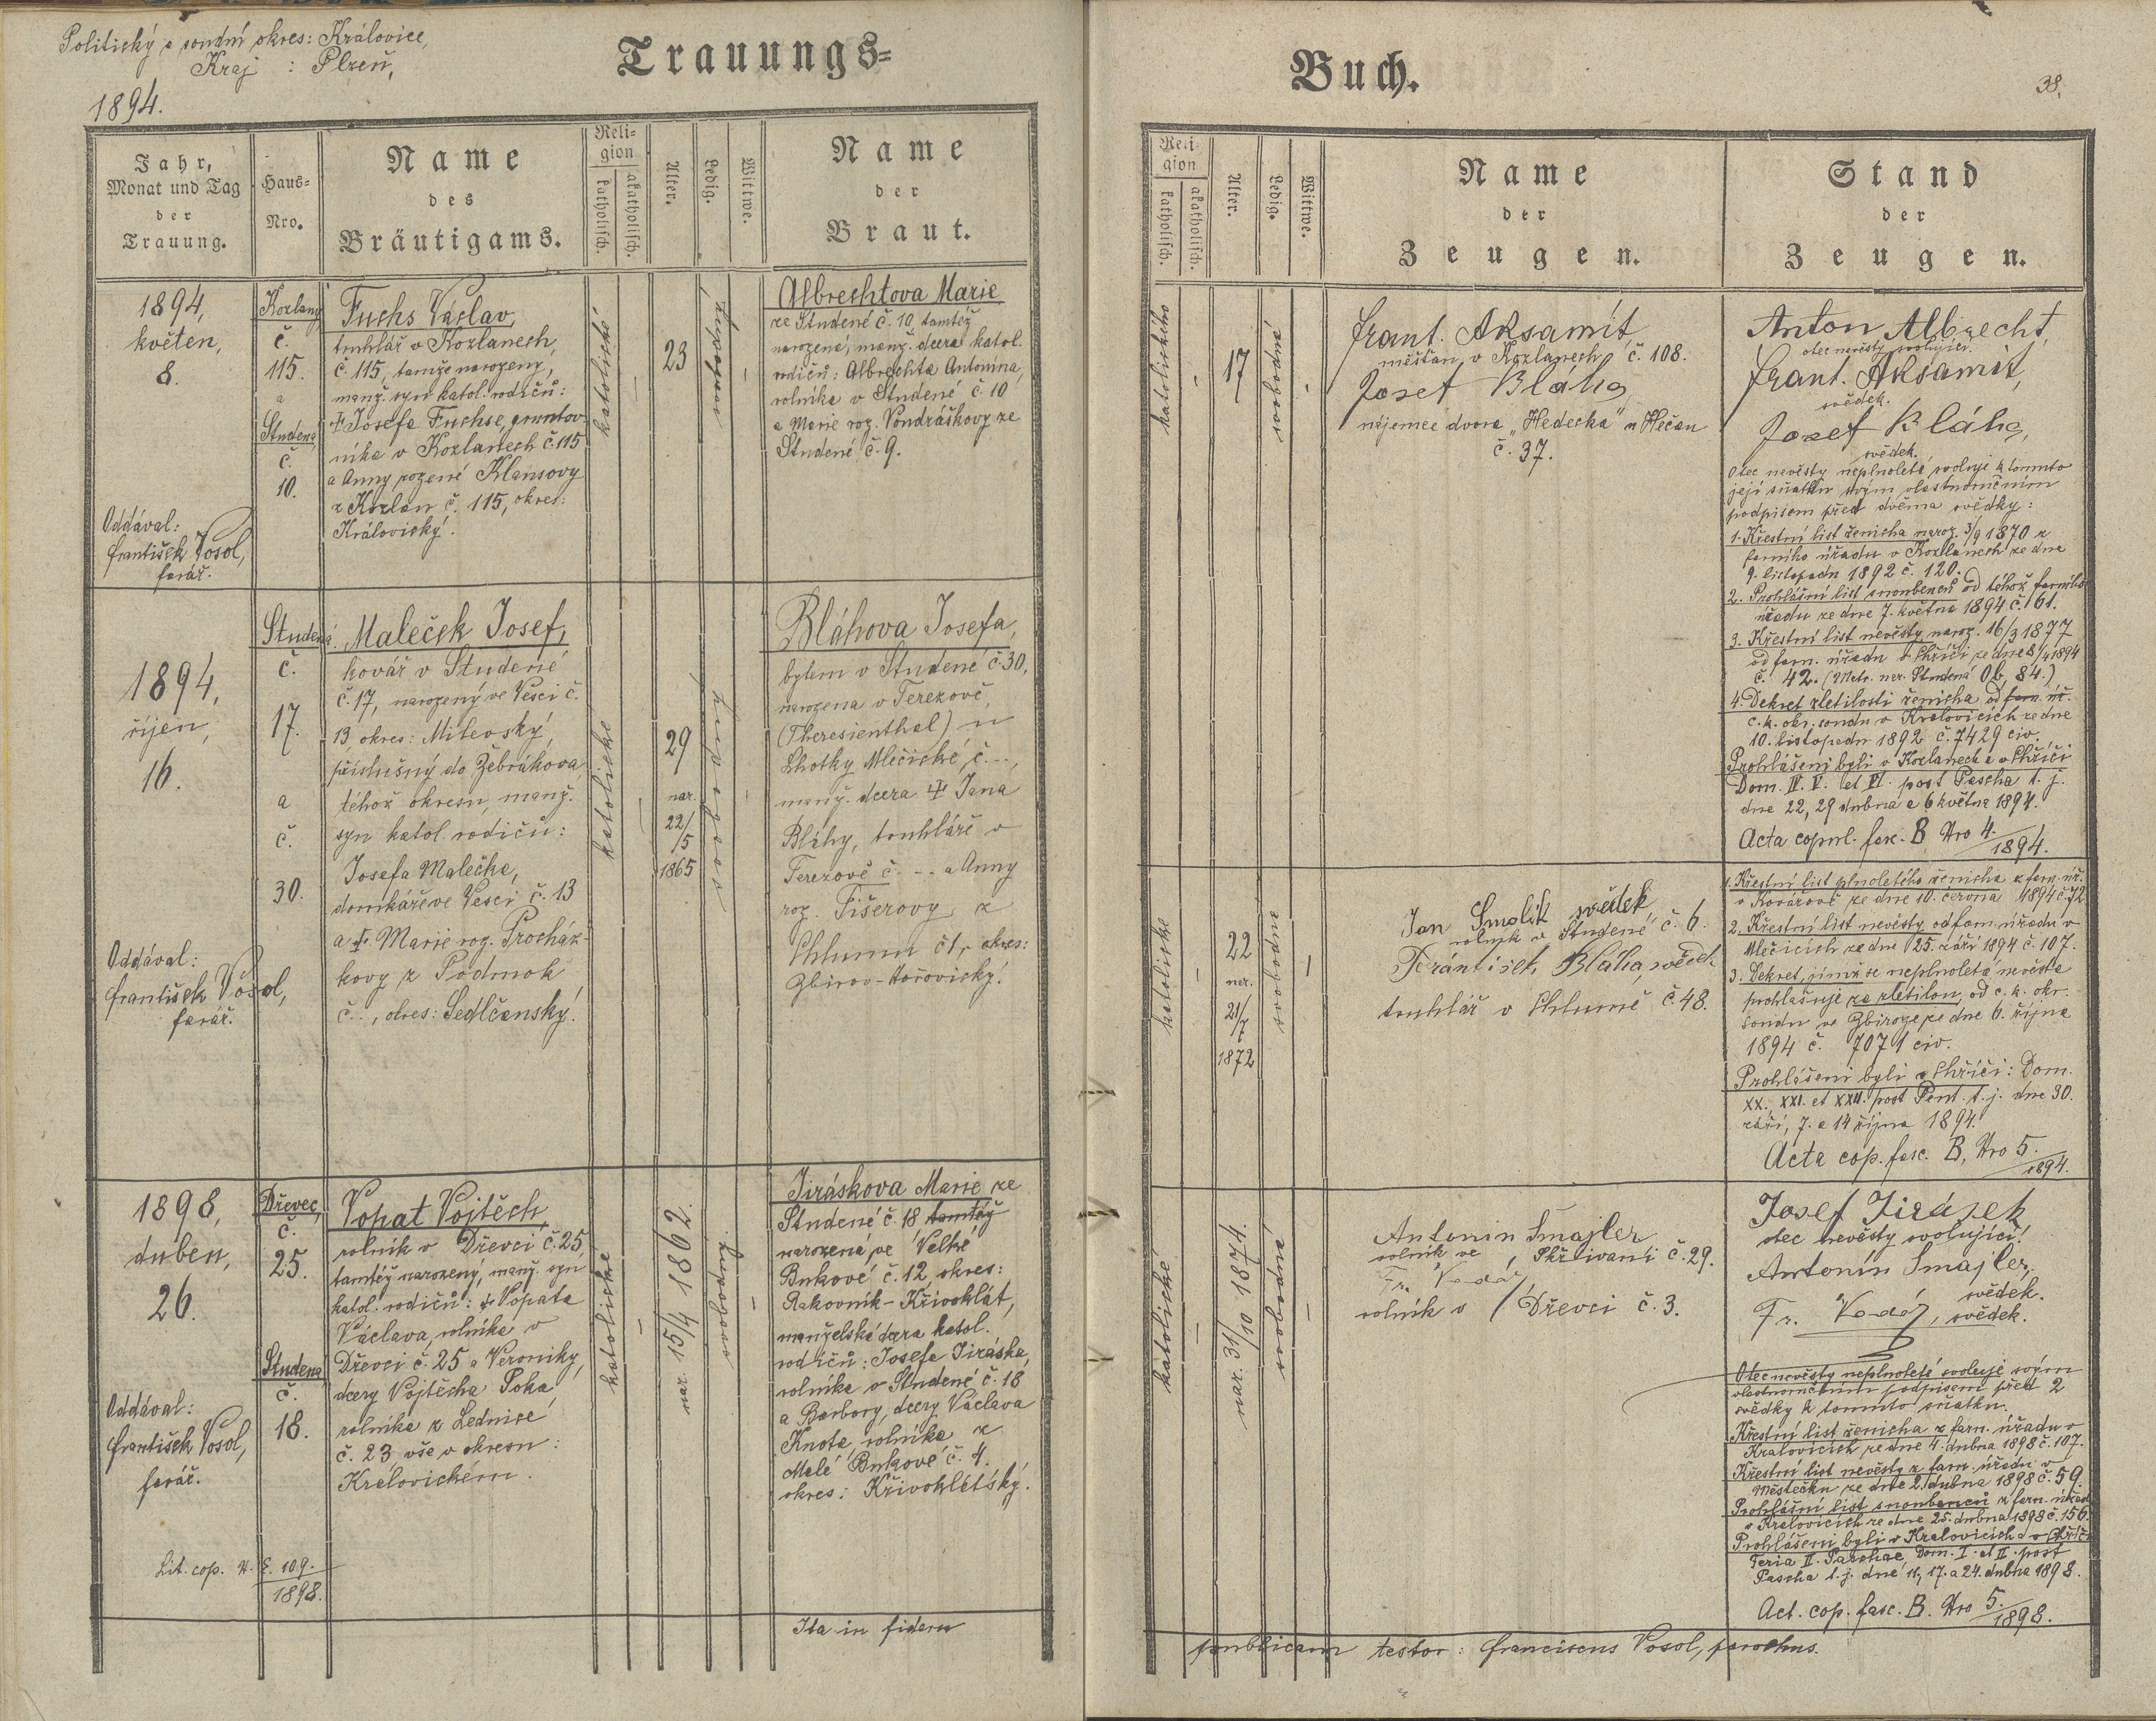 Politický a soudní okres: Kralovice,
Kraj : Plzeň,
1894.
Trauungs=
Jahr,
Monat und Tag
der
Trauung.
Haus=
Nro.
Name
des
Bräutigams.
Reli=
gion
katholisch.
akatholisch.
Alter.
Ledig.
Wittwe.
Name
der
Braut.
1894,
květen,
8.
Oddával:
František Vosol,
farář.
Kozlany
č.
115.
a
Studená
č.
10.
Fuchs Václav,
truhlář v Kozlanech,
č. 115, tamže narozený,
manž. syn katol. rodičů:
† Josefa Fuchse, gruntov-
níka v Kozlanech č. 115
a Anny rozené Klausovy
z Kozlan č. 115, okres:
Kralovický.
katolické
23
svobodný
Albrechtova Marie
ze Studené č. 10, tamtéž
narozená, manž. dcera katol.
rodičů: Albrechta Antonína,
rolníka v Studené č. 10
a Marie roz. Vondráškovy ze
Studené č. 9.
1894,
říjen,
16.
Oddával:
František Vosol,
farář.
Studená
č.
17.
a
č.
30.
Maleček Josef,
kovář v Studené
č. 17, narozený ve Vesci č.
13, okres: Milevský,
příslušný do Žebrákova
téhož okresu, manž.
syn katol. rodičů:
Josefa Malečka,
domkáře ve Vesci č. 13
a † Marie roz. Procház-
kovy z Podmok
č. .., okres: Sedlčanský.
katolické
29
nar.
22/
/5
1865
svobodný
Bláhova Josefa,
bytem v Studené č. 30,
narozena v Terezově,
(Theresienthal) u
Lhotky Mlečické, č. ..,
manž. dcera † Jana
Bláhy, truhláře v
Terezově č. -- a Anny
roz. Fišerovy z
Chlumu č. 1, okres:
Zbirov-Hořovický.
1898,
duben,
26.
Oddával:
František Vosol,
farář.
Lit. cop. N. E. 109.
1898.
Dřevec,
č.
25.
Studena
č.
18.
Vopat Vojtěch,
rolník v Dřevci č. 25,
tamtéž narozený, manž. syn
katol. rodičů: † Vopata
Václava, rolníka v
Dřevci č. 25 a Veroniky,
dcery Vojtěcha Poka
rolníka z Lednice
č. 23, vše v okresu:
Kralovickém.
katolické
nar. 15/4 1862.
svobodný
Jiráskova Marie ze
Studené č. 18 tamtéž
narozená ve Velké
Bukové č. 12, okres:
Rakovník-Křivoklát,
manželská dcera katol.
rodičů: Josefa Jiráska,
rolníka v Studené č. 18
a Barbory, dcery Václava
Knota, rolníka z
Malé Bukové č. 4.
okres: Křivoklátský.
Ita in fidem
Buch.
38.
Reli=
gion
katholisch.
akatholisch.
Alter.
Ledig.
Wittwe.
Name
der
Zeugen.
Stand
der
Zeugen.
katolického
17
svobodná
Frant. Aksamit,
měšťan v Kozlanech č. 108.
Josef Bláha,
nájemce dvora "Hedecka" u Hečan
č. 37.
Anton Albrecht,
otec nevěsty svolující.
Frant. Aksamit,
svědek.
Josef Bláha,
svědek.
Otec nevěsty neplnoleté svoluje k tomuto
její sňatku svým vlastnoručním
podpisem před dvěma svědky:
1. Křestní list ženicha naroz. 3/9 1870 z
farního úřadu v Kozlanech ze dne
9. listopadu 1892 č. 120.
2. Prohlášní list snoubenců od téhož farního
úřadu ze dne 7. května 1894 č. 161.
3. Křestní list nevěsty naroz. 16/3 1877
od farn. úřadu v Chříči ze dne 8/4 1894
č. 42. (Metr. nar. Studená Ob, 84.)
4. Dekret zletilosti ženicha od farn. úř.
c. k. okr. soudu v Kralovicích ze dne
10. listopadu 1892 č. 7429 civ.
Prohlášeni byli v Kozlanech a v Chříči
Dom. IV. V. et VI. post Pascha t. j.
dne 22, 29 dubna a 6 května 1894.
Acta copul. fasc. B, Nro 4.
1894.
katolické
22
nar.
21/
/7
1872
svobodná
Jan Smolik svědek
rolník v Studené č. 6.
František Bláha, svědek
truhlář v Chlumě č. 48.
1. Křestní list plnoletého ženicha z farn. úř.
v Kovářově ze dne 10. června 1894 č. 72.
2. Křestní list nevěsty od farn. úřadu v
Mlečicích ze dne 25. září 1894 č. 107.
3. Dekret, jímž se neplnoletá nevěsta
prohlašuje za zletilou, od c. k. okr.
soudu ve Zbiroze ze dne 6. října
1894 č. 7071 civ.
Prohlášeni byli v Chříči: Dom.
XX., XXI. et XXII. post Pent. t. j. dne 30.
září, 7. a 14 října 1894.
Acta cop. fasc. B, Nro 5.
1894.
katolické
nar. 31/10 1874.
svobodná
Antonin Šmajler
rolník ve Skřivani č. 29.
Fr. Vodáž,
rolník v Dřevci č. 3.
Josef Jirásek
otec nevěsty svolující!
Antonín Šmajler,
svědek.
Fr. Vodáž, svědek.
Otec nevěsty neplnoleté svoluje svým
vlastnoručním podpisem před 2
svědky k tomuto sňatku.
Křestní list ženicha z farn. úřadu v
Kralovicích ze dne 4. dubna 1898 č. 107.
Křestní list nevěsty z farn. úřadu v
Městečku ze dne 2. dubna 1898 č. 59.
Prohlášní list snoubenců z farn. úřadu
v Kralovicích ze dne 25. dubna 1898 č. 156.
Prohlášeni byli v Kralovicích a v Chříči
Feria II. Paschae, Dom. I. et II. post
Pascha t. j. dne 11., 17. a 24. dubna 1898.
Act. cop. fasc. B. Nro 5.
1898.
publicam testor: Franciscus Vosol, parochus.